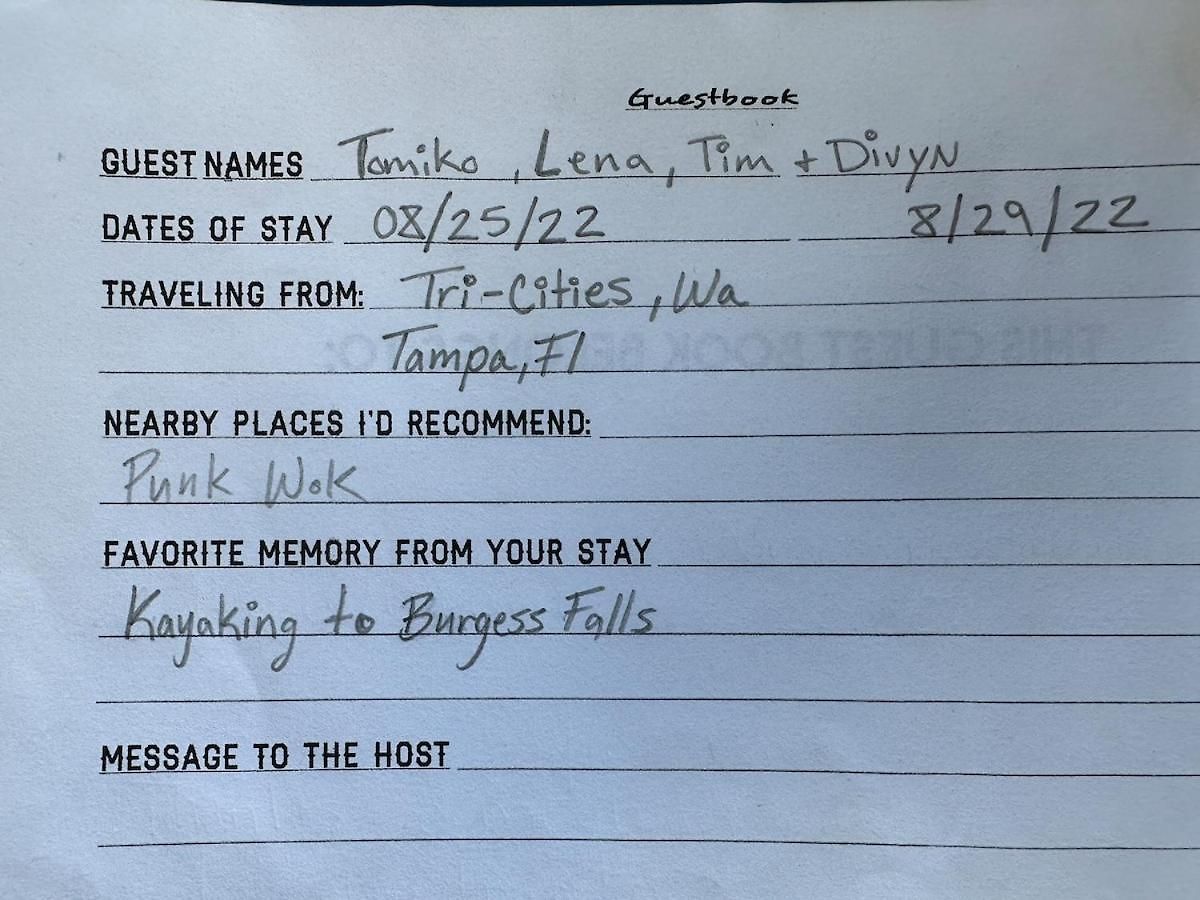 Guestbook
GUEST NAMES Tomiko, Lena, Tim + Divyn
DATES OF STAY 08/25/22 8/29/22
TRAVELING FROM: Tri-Cities, Wa
Tampa, Fl
NEARBY PLACES I'D RECOMMEND:
Punk Wok
FAVORITE MEMORY FROM YOUR STAY
Kayaking to Burgess Falls
MESSAGE TO THE HOST